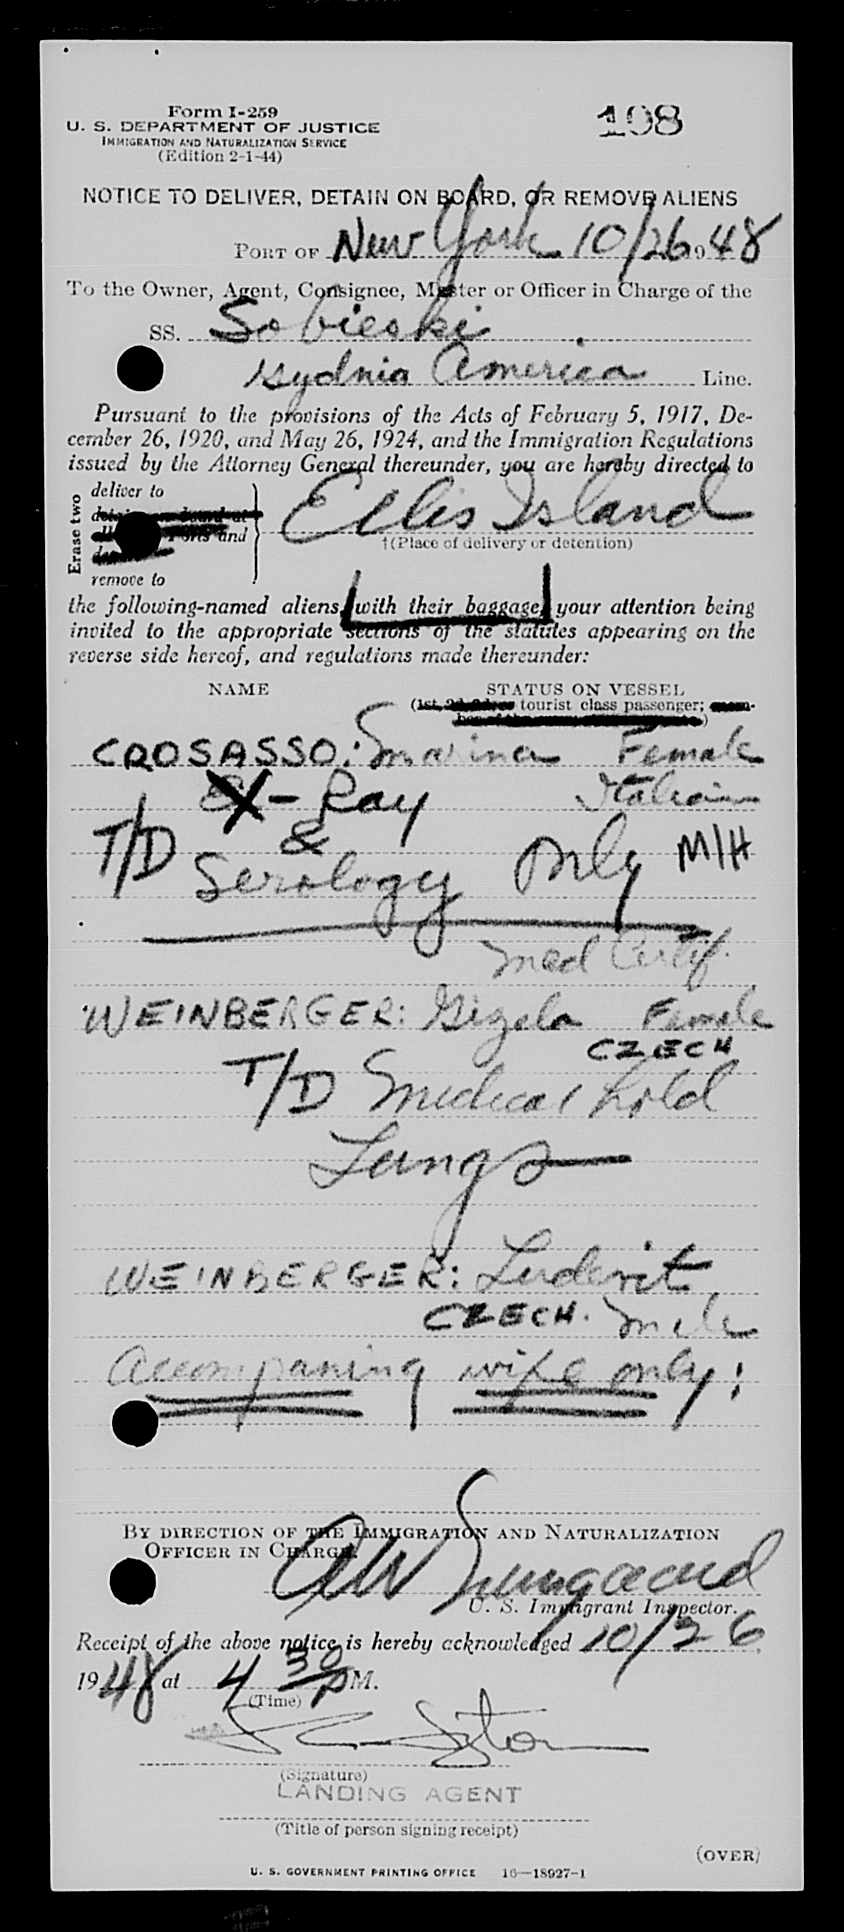 Form I-259
198
U. S. DEPARTMENT OF JUSTICE
IMMIGRATION AND NATURALIZATION SERVICE
(Edition 2-1-44)
NOTICE TO DELIVER, DETAIN ON BOARD, OR REMOVE ALIENS
PORT OF New York 10/26 1948
To the Owner, Agent, Consignee, Master or Officer in Charge of the
SS. Sobieski
Gydnia America Line.
Pursuant to the provisions of the Acts of February 5, 1917, De-
cember 26, 1920, and May 26, 1924, and the Immigration Regulations
issued by the Attorney General thereunder, you are hereby directed to
Erase two
deliver to
detain on board at
Ports and
remove to
Ellis Island
†(Place of delivery or detention)
the following-named aliens, with their baggage, your attention being
invited to the appropriate sections of the statutes appearing on the
reverse side hereof, and regulations made thereunder:
NAME STATUS ON VESSEL
(1st, tourist class passenger; mem-
)
CROSASSO: Marina Female
X-Ray Italian
T/D & Serology Only M/H
Med Certif.
WEINBERGER: Gizela Female
CZECH
T/D Medical hold
Lungs
WEINBERGER: Ludevit
CZECH. Male
Accompaning wife only!
BY DIRECTION OF THE IMMIGRATION AND NATURALIZATION
OFFICER IN CHARGE.
U. S. Immigrant Inspector.
Receipt of the above notice is hereby acknowledged 10/26,
1948 at 4 30 PM.
(Time)
(Signature)
LANDING AGENT
(Title of person signing receipt)
(OVER)
U. S. GOVERNMENT PRINTING OFFICE 16—18927-1